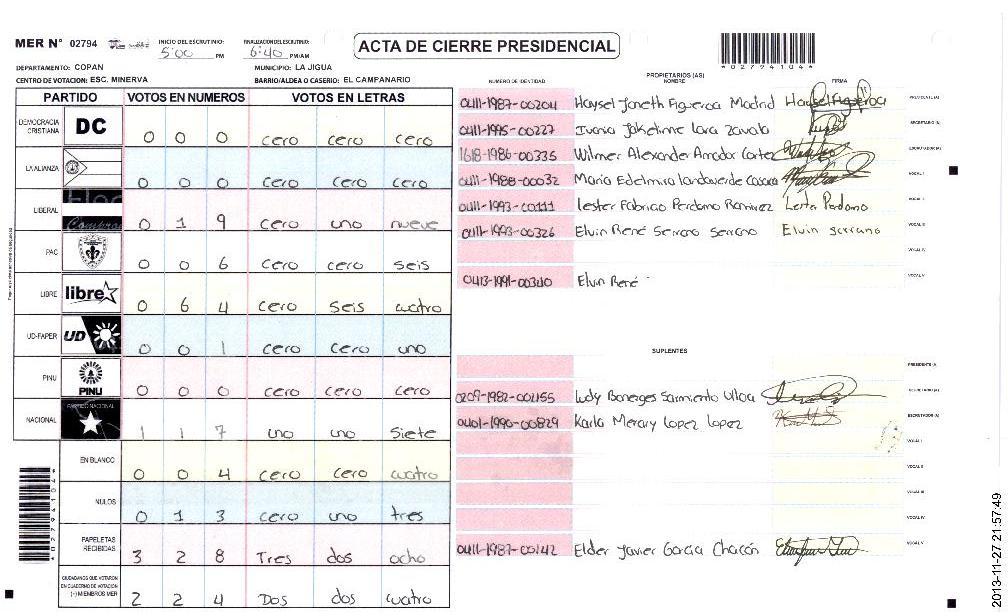 MER Nº 02794
INICIO DEL ESCRUTINIO: 5:00 PM
FINALIZACION DEL ESCRUTINIO: 6:40 PM/AM
ACTA DE CIERRE PRESIDENCIAL
*02794104*
DEPARTAMENTO: COPAN
MUNICIPIO: LA JIGUA
CENTRO DE VOTACION: ESC. MINERVA
BARRIO/ALDEA O CASERIO: EL CAMPANARIO
PARTIDO VOTOS EN NUMEROS VOTOS EN LETRAS
DEMOCRACIA CRISTIANA DC 0 0 0 cero cero cero
LA ALIANZA 0 0 0 cero cero cero
LIBERAL 0 1 9 cero uno nueve
PAC 0 0 6 cero cero seis
LIBRE libre 0 6 4 cero seis cuatro
UD-FAPER UD 0 0 1 cero cero uno
PINU PINU 0 0 0 cero cero cero
NACIONAL PARTIDO NACIONAL 1 1 7 uno uno siete
EN BLANCO 0 0 4 cero cero cuatro
NULOS 0 1 3 cero uno tres
PAPELETAS RECIBIDAS 3 2 8 Tres dos ocho
CIUDADANOS QUE VOTARON EN CUADERNO DE VOTACION (-) MIEMBROS MER 2 2 4 Dos dos cuatro
*02794104*
PROPIETARIOS (AS)
NUMERO DE IDENTIDAD NOMBRE FIRMA
0411-1987-00204 Haysel Janeth Figueroa Madrid Haysel Figueroa PRESIDENTE (A)
0411-1995-00227 Ivania Jakelinne Lara Zavala SECRETARIO (A)
1618-1986-00335 Wilmer Alexander Amador Cortez ESCRUTADOR (A)
0411-1988-00032 Maria Edelmira Landaverde VOCAL I
0411-1993-00111 Lester Fabricio Perdomo Ramirez Perdomo VOCAL II
0411-1993-00326 Elvin René Serrano Serrano Elvin Serrano VOCAL III
VOCAL IV
0413-1991-00340 Elvin René VOCAL V
SUPLENTES
PRESIDENTE (A)
0209-1982-00455 Sarmiento Ulloa SECRETARIO (A)
0401-1990-00829 Karla Merary Lopez Lopez ESCRUTADOR (A)
VOCAL I
VOCAL II
VOCAL III
VOCAL IV
0411-1987-00142 Elder Javier Garcia Chacón VOCAL V
2013-11-27 21:57:49